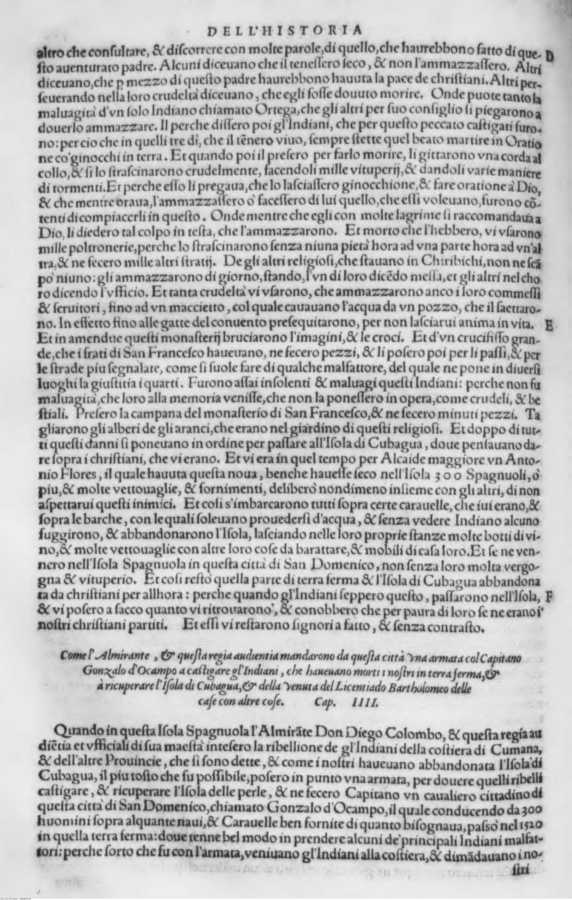 DELL'HISTORIA
altro che consultare, & discorrere con molte parole, di quello, che haurebbono fatto di que- D
sto auenturato padre. Alcuni diceuano che il tenessero seco, & non l'ammazzassero. Altri
diceuano, che p mezzo di questo padre haurebbono hauuta la pace de christiani. Altri per-
seuerando nella loro crudeltà diceuano, che egli fosse douuto morire. Onde puote tanto la
maluagità d'vn solo Indiano chiamato Ortega, che gli altri per suo consiglio si piegarono a
douerlo ammazzare. Il perche dissero poi gl'Indiani, che per questo peccato castigati furo-
no: per cio che in quelli tre dì, che il tēnero viuo, sempre stette quel beato martire in Oratio
ne co'ginocchi in terra. Et quando poi il presero per farlo morire, li gittarono vna corda al
collo, & sì lo strascinarono crudelmente, facendoli mille vituperij, & dandoli varie maniere
di tormenti. Et perche esso li pregaua, che lo lasciassero ginocchione, & fare oratione à Dio,
& che mentre oraua, l'ammazzassero ò facessero di lui quello, che essi voleuano, furono cō-
tenti di compiacerli in questo. Onde mentre che egli con molte lagrime si raccomandaua a
Dio, li diedero tal colpo in testa, che l'ammazzarono. Et morto che l'hebbero, vi vsarono
mille poltronerie, perche lo strascinarono senza niuna pietà hora ad vna parte hora ad vn'al
tra, & ne fecero mille altri stratij. De gli altri religiosi, che stauano in Chiribichi, non ne scā
pò niuno: gli ammazzarono di giorno, stando, l'vn di loro dicēdo messa, et gli altri nel cho
ro dicendo l'vfficio. Et tanta crudeltà vi vsarono, che ammazzarono anco i loro commessi
& seruitori, fino ad vn maccietto, col quale cauauano l'acqua da vn pozzo, che il saettaro-
no. In effetto fino alle gatte del conuento presequitarono, per non lasciarui anima in vita. E
Et in amendue questi monasterij bruciarono l'imagini, & le croci. Et d'vn crucifisso gran-
de, che i frati di San Francesco haueuano, ne fecero pezzi, & li posero poi per li passi, & per
le strade piu segnalate, come si suole fare di qualche malfattore, del quale ne pone in diuersi
luoghi la giustitia i quarti. Furono assai insolenti & maluagi questi Indiani: perche non fu
maluagità, che loro alla memoria venisse, che non la ponessero in opera, come crudeli, & be
stiali. Presero la campana del monasterio di San Francesco, & ne fecero minuti pezzi. Ta
gliarono gli alberi de gli aranci, che erano nel giardino di questi religiosi. Et doppo di tut-
ti questi danni si poneuano in ordine per passare all'Isola di Cubagua, doue pensauano da-
re sopra i christiani, che vi erano. Et vi era in quel tempo per Alcaide maggiore vn Anto-
nio Flores, il quale hauuta questa noua, benche hauesse seco nell'Isola 300 Spagnuoli, ò
piu, & molte vettouaglie, & fornimenti, deliberò nondimeno insieme con gli altri, di non
aspettarui questi inimici. Et così s'imbarcarono tutti sopra certe carauelle, che iui erano, &
sopra le barche, con le quali soleuano prouedersi d'acqua, & senza vedere Indiano alcuno
fuggirono, & abbandonarono l'Isola, lasciando nelle loro proprie stanze molte botti di vi-
no, & molte vettouaglie con altre loro cose da barattare, & mobili di casa loro. Et se ne ven-
nero nell'Isola Spagnuola in questa città di San Domenico, non senza loro molta vergo-
gna & vituperio. Et così restò quella parte di terra ferma & l'Isola di Cubagua abbandona
ta da christiani per allhora: perche quando gl'Indiani seppero questo, passarono nell'Isola, F
& vi posero a sacco quanto vi ritrouarono, & conobbero che per paura di loro se ne erano i
nostri christiani partiti. Et essi vi restarono signori a fatto, & senza contrasto.
Come l'Almirante, & questa regia audientia mandarono da questa città vna armata col Capitano
Gonzalo d'Ocampo a castigare gl'Indiani, che haueuano morti i nostri in terra ferma, &
à ricuperare l'Isola di Cubagua, & della venuta del Licentiado Bartholomeo delle
case con altre cose. Cap. IIII.
Quando in questa Isola Spagnuola l'Almirāte Don Diego Colombo, & questa regia au
diētia et vfficiali di sua maestà intesero la ribellione de gl'Indiani della costiera di Cumana,
& dell'altre Prouincie, che si sono dette, & come i nostri haueuano abbandonata l'Isola di
Cubagua, il piu tosto che fu possibile, posero in punto vna armata, per douere quelli ribelli
castigare, & ricuperare l'Isola delle perle, & ne fecero Capitano vn caualiero cittadino di
questa città di San Domenico, chiamato Gonzalo d'Ocampo, il quale conducendo da 300
huomini sopra alquante naui, & Carauelle ben fornite di quanto bisognaua, passò nel 1520
in quella terra ferma: doue tenne bel modo in prendere alcuni de'principali Indiani malfat-
tori: perche sorto che fu con l'armata, veniuano gl'Indiani alla costiera, & dimādauano i no-
stri